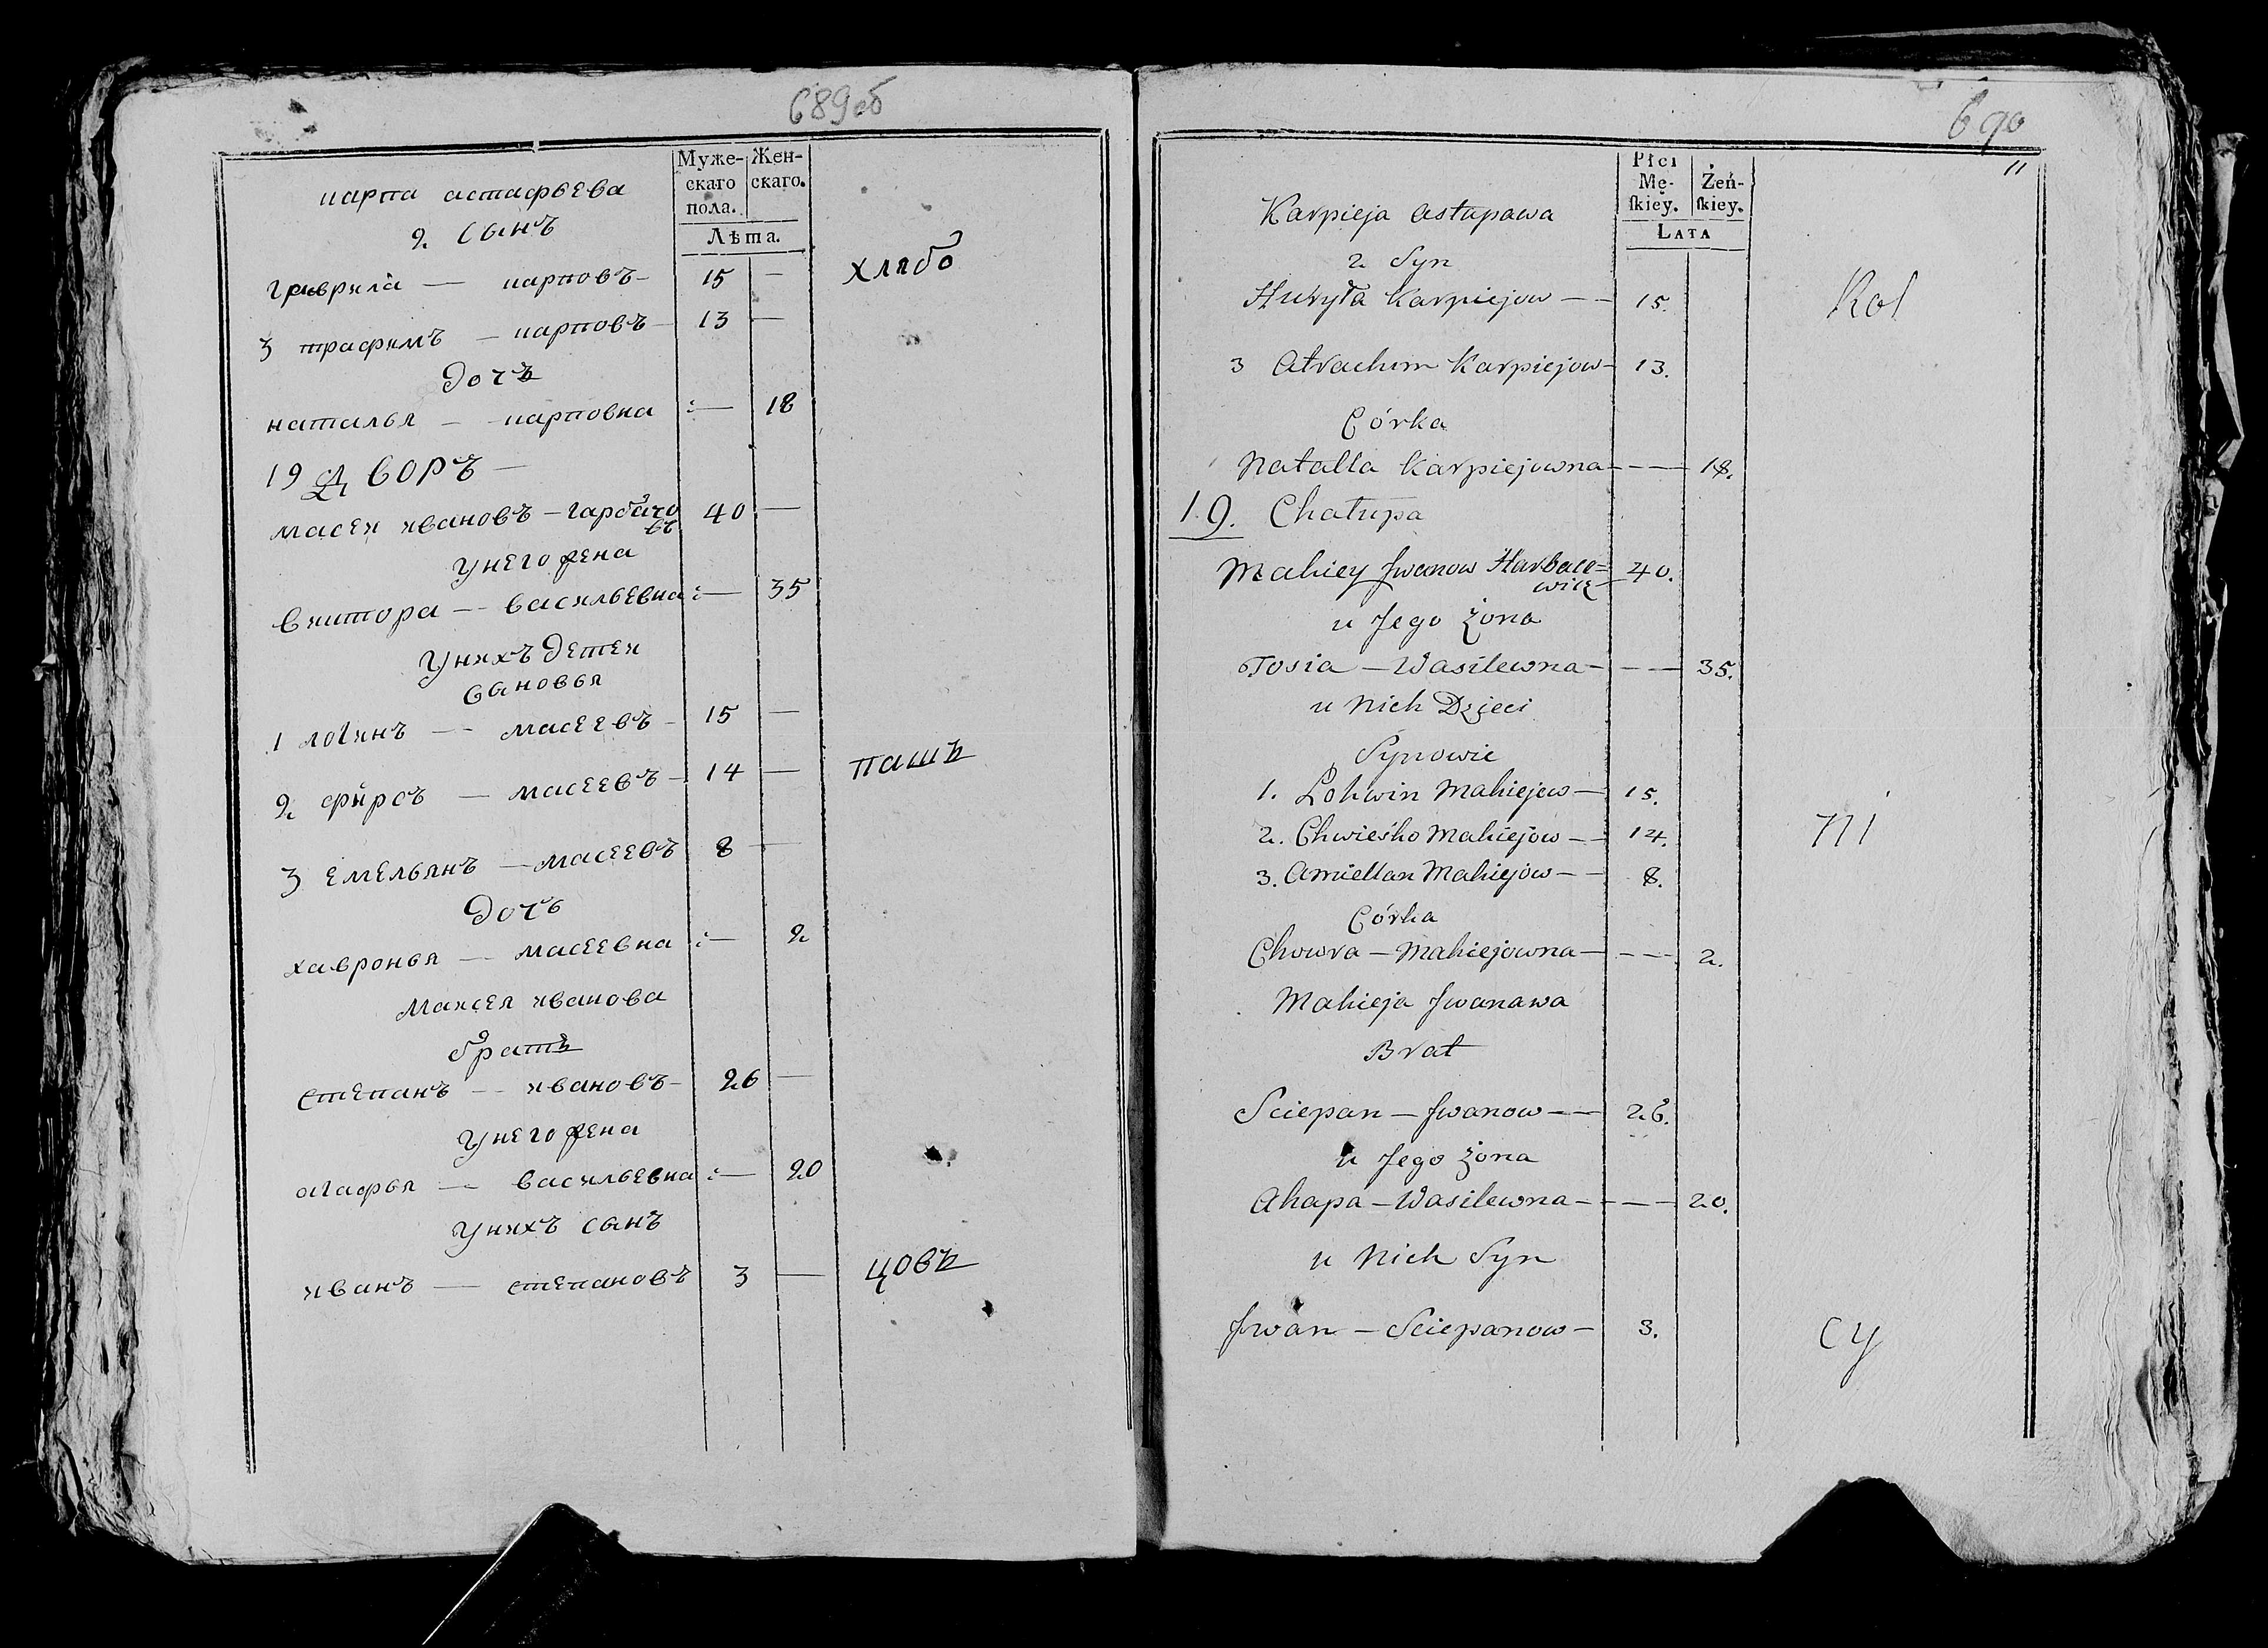 689об
Муже-
скаго
пола.
Жен-
скаго.
Лѣта.
карпа астафьева
2 сынъ
гаврила — карповъ — 15 —
хлѣбо
3 трафимъ — карповъ — 13 —
дочь
наталья — карповна — 18
19 Дворъ —
масеи ивановъ — гарбачо 40 —
въ
унего жена
— васильевна — 35
унихъ детеи
сыновья
1 логинъ — масеевъ — 15 —
2 — масеевъ — 14 —
пашъ
3 емельянъ — масеевъ 8 —
дочь
хавронья — масеевна — 2
иванова
братъ
степанъ — ивановъ — 26 —
унего жена
агафья — васильевна — 20
унихъ сынъ
иванъ — степановъ 3 —
цовъ
690
11
Płci
Mę-
skiey.
Żeń-
skiey.
LATA
Karpieja Astapawa
2 Syn
Karpiejow — — 15.
Rol
3 Atrachim Karpiejow — 13.
Córka
Natalla Karpiejowna — — — 18.
19. Chałupa
Mahiey Jwanow Harbace= 40.
wicz
u Jego żona
Tosia — Wasilewna — — — 35.
u Nich Dzieci
Synowie
1. Lohwin Mahiejew — 15.
2. Chwieśko Mahiejow — — 14.
ni
3. Amiellan Mahiejow — — 8.
Córka
Chowra — Mahiejowna — — — 2.
Mahieja Jwanawa
Brat
Sciepan — Jwanow — — 26.
u Jego żona
Ahapa — Wasilewna — — — 20.
u Nich Syn
Jwan — Sciepanow — 3.
cy